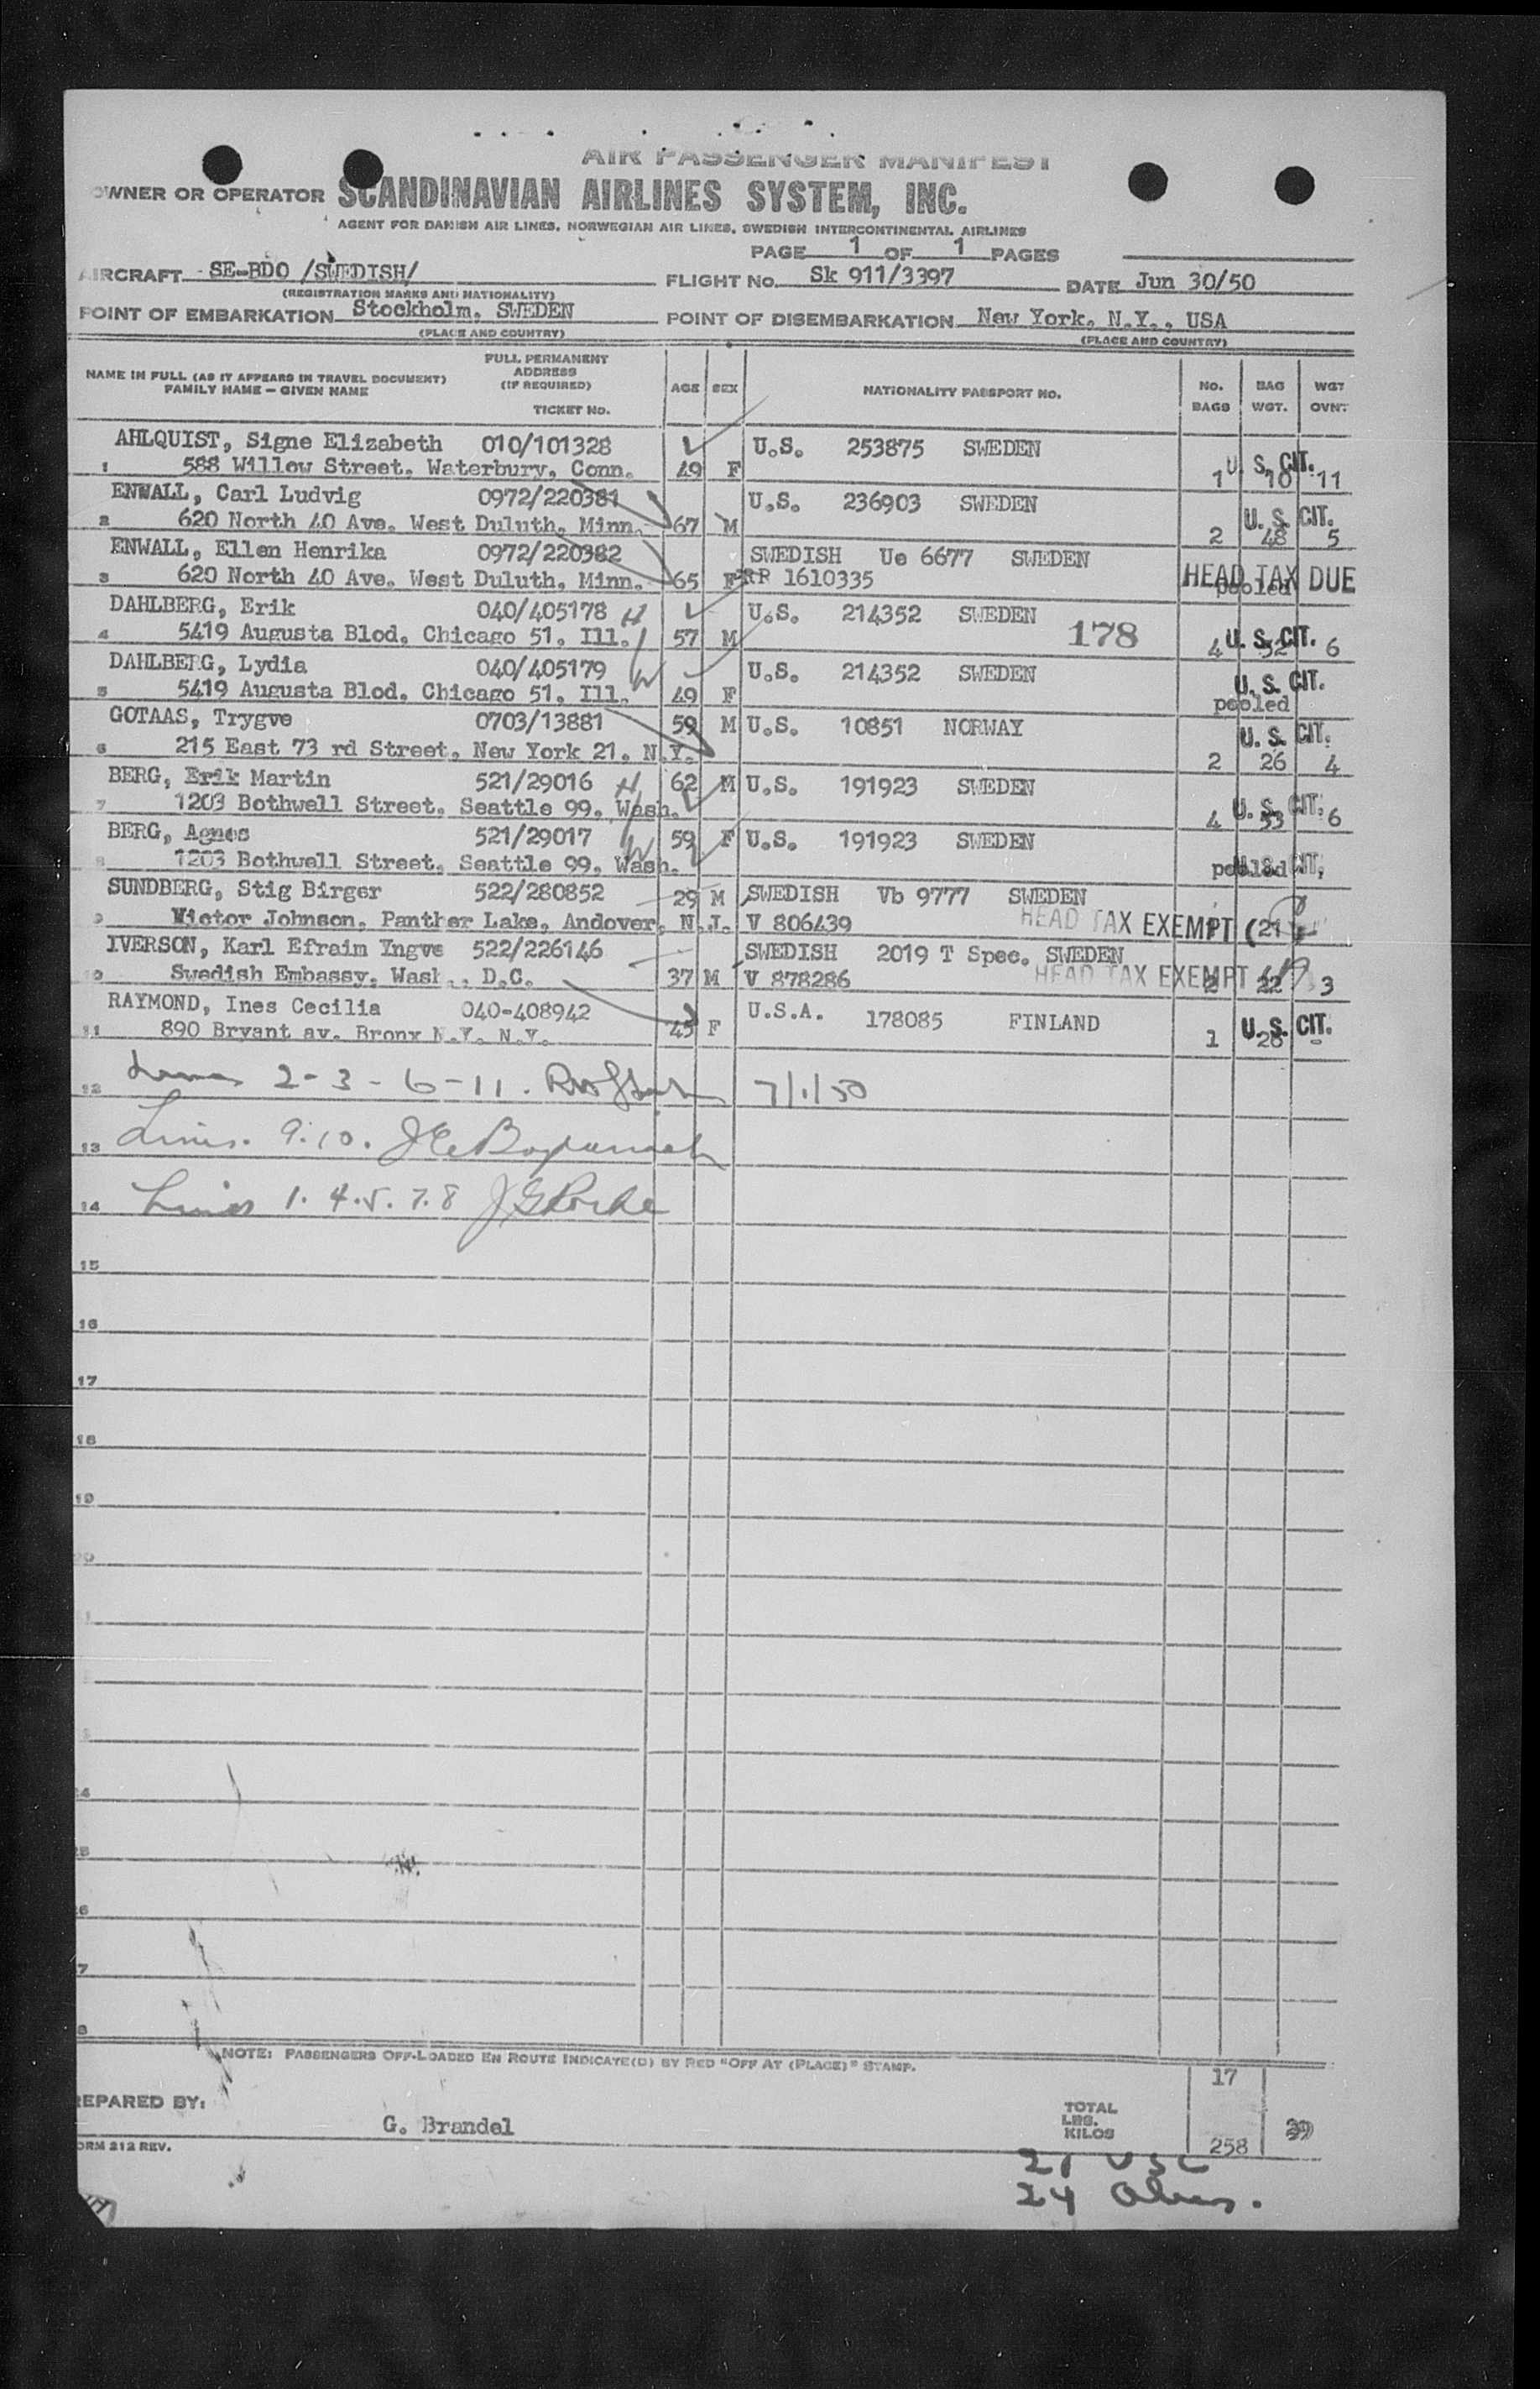 AIR PASSENGER MANIFEST
OWNER OR OPERATOR SCANDINAVIAN AIRLINES SYSTEM, INC.
AGENT FOR DANISH AIR LINES, NORWEGIAN AIR LINES, SWEDISH INTERCONTINENTAL AIRLINES
PAGE 1 OF 1 PAGES
AIRCRAFT SE-BDO /SWEDISH/ FLIGHT No. Sk 911/3397 DATE Jun 30/50
(REGISTRATION MARKS AND NATIONALITY)
POINT OF EMBARKATION Stockholm, SWEDEN POINT OF DISEMBARKATION New York, N.Y., USA
(PLACE AND COUNTRY) (PLACE AND COUNTRY)
NAME IN FULL (AS IT APPEARS IN TRAVEL DOCUMENT) FAMILY NAME – GIVEN NAME FULL PERMANENT ADDRESS (IF REQUIRED) TICKET No. AGE SEX NATIONALITY PASSPORT No. No. BAGS BAG WGT. WGT OVNT.
AHLQUIST, Signe Elizabeth 010/101328 U.S. 253875 SWEDEN
1 588 Willow Street, Waterbury, Conn. 49 F 1 10 11 U. S. CIT.
ENWALL, Carl Ludvig 0972/220381 U.S. 236903 SWEDEN
2 620 North 40 Ave. West Duluth, Minn. 67 M 2 48 5 U. S. CIT.
ENWALL, Ellen Henrika 0972/220382 SWEDISH Ue 6677 SWEDEN
3 620 North 40 Ave. West Duluth, Minn. 65 F RP 1610335 pooled HEAD TAX DUE
DAHLBERG, Erik 040/405178 H U.S. 214352 SWEDEN
4 5419 Augusta Blod, Chicago 51, Ill. 57 M 178 4 52 6 U. S. CIT.
DAHLBERG, Lydia 040/405179 W U.S. 214352 SWEDEN
5 5419 Augusta Blod, Chicago 51, Ill. 49 F pooled U. S. CIT.
GOTAAS, Trygve 0703/13881 59 M U.S. 10851 NORWAY
6 215 East 73 rd Street, New York 21, N.Y. 2 26 4 U. S. CIT.
BERG, Erik Martin 521/29016 H 62 M U.S. 191923 SWEDEN
7 1203 Bothwell Street, Seattle 99, Wash. 4 53 6 U. S. CIT.
BERG, Agnes 521/29017 W 59 F U.S. 191923 SWEDEN
8 1203 Bothwell Street, Seattle 99, Wash. pooled U. S. CIT.
SUNDBERG, Stig Birger 522/280852 29 M SWEDISH Vb 9777 SWEDEN
9 Victor Johnson, Panther Lake, Andover, N.J. V 806439 HEAD TAX EXEMPT 21
IVERSON, Karl Efraim Yngve 522/226146 SWEDISH 2019 T Spec. SWEDEN
10 Swedish Embassy, Wash., D.C. 37 M V 878286 HEAD TAX EXEMPT 2 22 3
RAYMOND, Ines Cecilia 040-408942 U.S.A. 178085 FINLAND
11 890 Bryant av. Bronx N.Y. N.Y. 45 F 1 28 - U. S. CIT.
12 Lines 2-3-6-11. 7/1/50
13 Lines. 9.10.
14 Lines 1.4.5.7.8 J G Rorke
15
16
17
18
19
20
NOTE: PASSENGERS OFF-LOADED EN ROUTE INDICATE(D) BY RED "OFF AT (PLACE)" STAMP.
17
PREPARED BY: G. Brandel TOTAL LBS. KILOS 258 39
FORM 212 REV.
21 USC
24 Aliens.